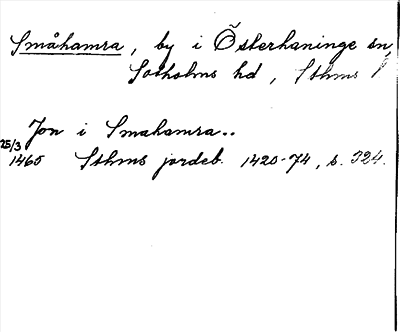 Småhamra, by i Österhaninge sn,
Sotholms hd, Sthms l
Jon i Smahamra..
25/3
1465 Sthms jordeb. 1420-74, s. 324.